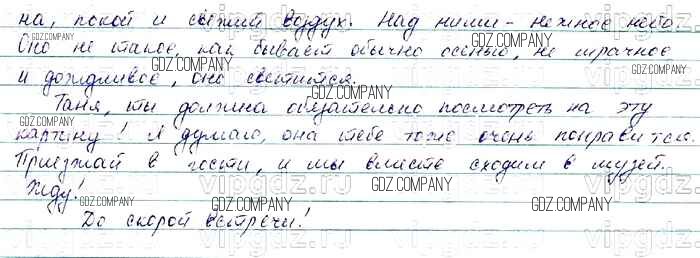 на, покой и свежий воздух. Над ними – нежное небо.
Оно не такое, как бывает обычно осенью, не мрачное
и дождливое, оно светится.
Таня, ты должна обязательно посмотреть на эту
картину! Я думаю, она тебе тоже очень понравится.
Приезжай в гости, и мы вместе сходим в музей.
Жду!
До скорой встречи!
GDZ.COMPANY
vipgdz.ru